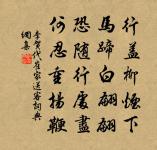 行盖柳煙下
馬蹄白翩翩
恐随行處盡
何忍重揚鞭
李賀代崔家送客詞典
網集